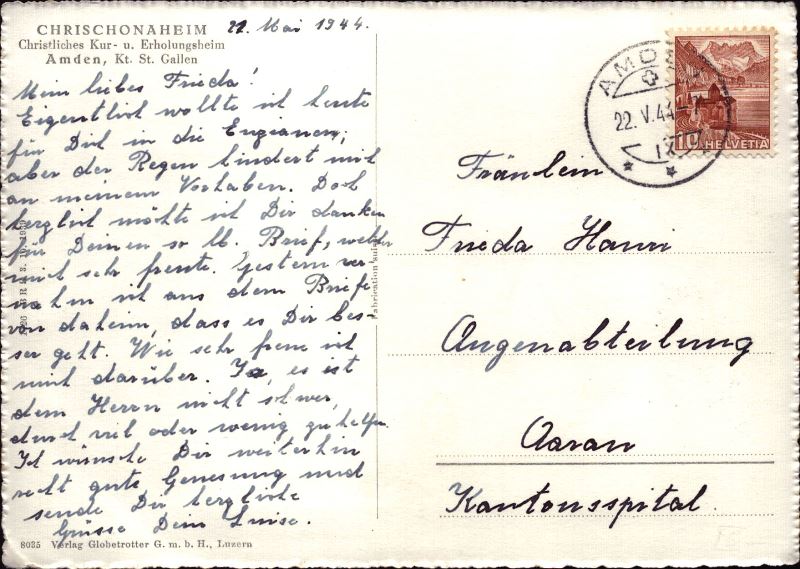 CHRISCHONAHEIM
Christliches Kur- u. Erholungsheim
Amden, Kt. St. Gallen
21. Mai 1944.
Mein liebes Frieda!
Eigentlich wollte ich heute
für Dich in die Enzianen,
aber der Regen hindert mich
an meinem Vorhaben. Doch
herzlich möchte ich Dir danken
für Deinen so lb. Brief, welcher
mich sehr freute. Gestern ver-
nahm ich aus dem Briefe
von daheim, dass es Dir bes-
ser geht. Wie sehr freue ich
mich darüber. Ja, es ist
dem Herrn nicht schwer,
durch viel oder wenig zu helfen.
Ich wünsche Dir weiterhin
recht gute Genesung und
sende Dir herzliche
Grüsse Dein Luise.
8035 Verlag Globetrotter G. m. b. H., Luzern
Fabrication suisse
AMDEN
22. V. 44
10 HELVETIA
Fräulein
Frieda Hauri
Augenabteilung
Aarau
Kantonsspital.